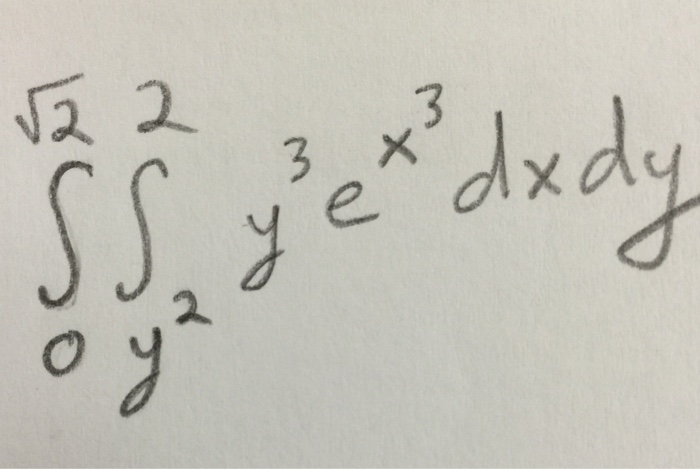 ∫₀^√2 ∫_y²^2 y³ e^x³ dx dy